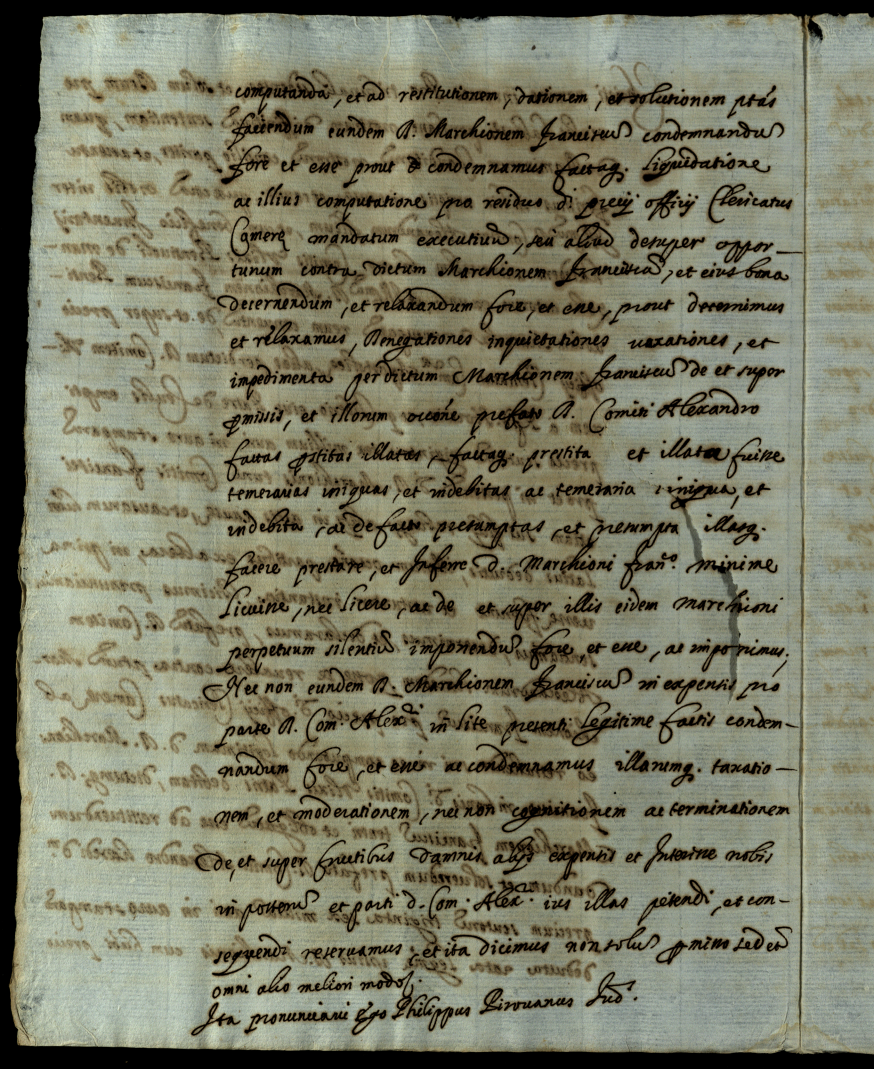 computanda, et ad restitutionem, dationem, et solutionem ptās
faciendum eundem R. Marchionem Franciscū condemnandū
fore et esse prout condemnamus factaq. liquidatione
ac illius computatione pro residuo d. precij officij Clericatus
Camerę mandatum executivū, seu aliud desuper oppor-
tunum contra dictum Marchionem Franciscū, et eius bona
decernendum, et relaxandum fore, et esse, prout decernimus
et relaxamus, denegationes inquietationes vexationes, et
impedimenta per dictum Marchionem Franciscū de et super
p̄missis, et illorum occōne prefato R. Comiti Alexandro
factas p̄stitas illatas, factaq. prestita et illata fuisse
temerarias iniquas, et indebitas ac temeraria iniqua, et
indebita, ac de facto presumptas, et presumpta illasq.
facere prestare, et Inferre d. Marchioni Franc.o minime
licuisse, nec licere, ac de et super illis eidem marchioni
perpetuum silentiū imponendū fore, et esse, ac imponimus;
Nec non eundem R. Marchionem Franciscū in expensis pro
parte R. Com. Alex.i in lite presenti legitime factis condem-
nandum fore, et esse ac condemnamus illarumq. taxatio-
nem, et moderationem, nec non cognitionem ac terminationem
de, et super fructibus damnis alijs expensis et Interesse nobis
in posterū et parti d. Com. Alex.i ius illas petendi, et con-
sequendi reservamus, et ita dicimus non solū p̄misso sed et
omni alio meliori modo.
Ita pronunciavi Ego Philippus Pirovanus Jud.